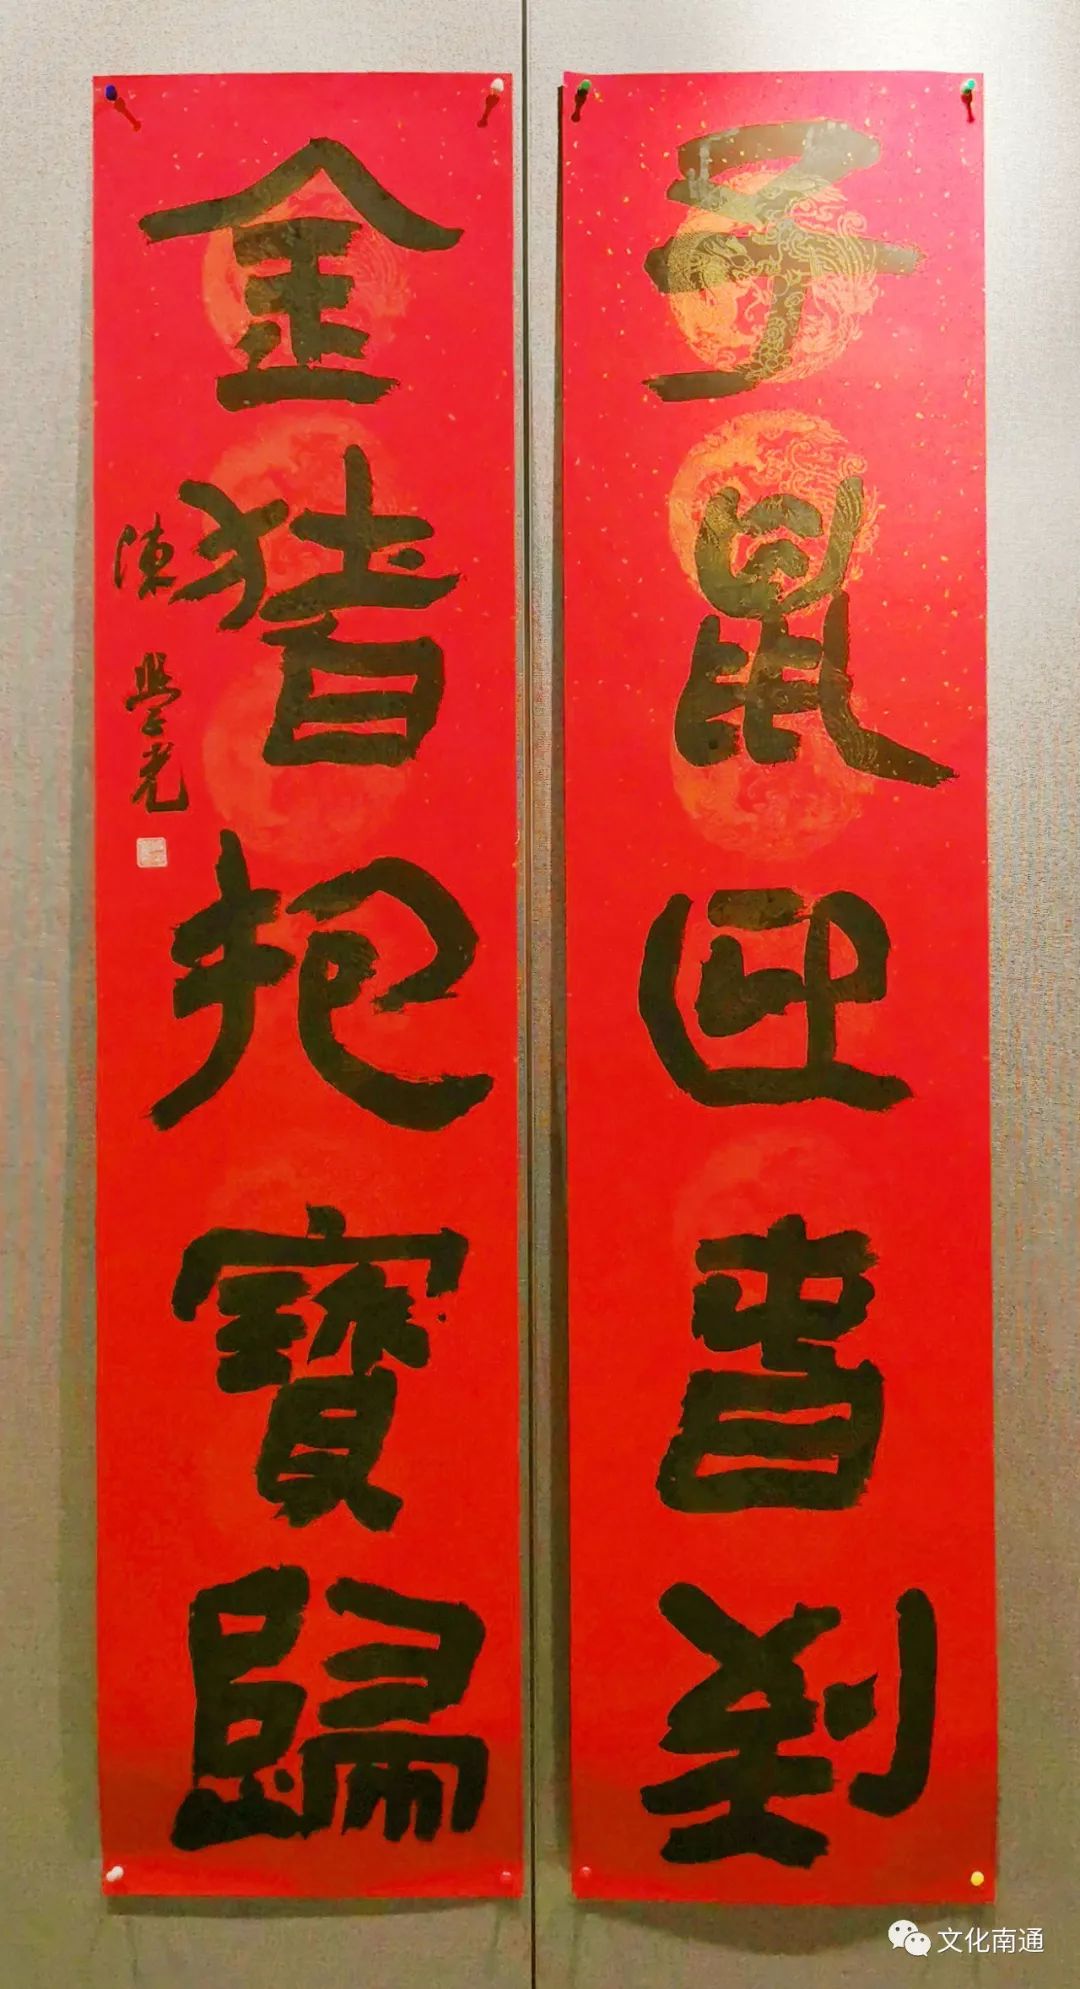 子鼠迎春到
金猪抱寶歸
陳學光
文化南通